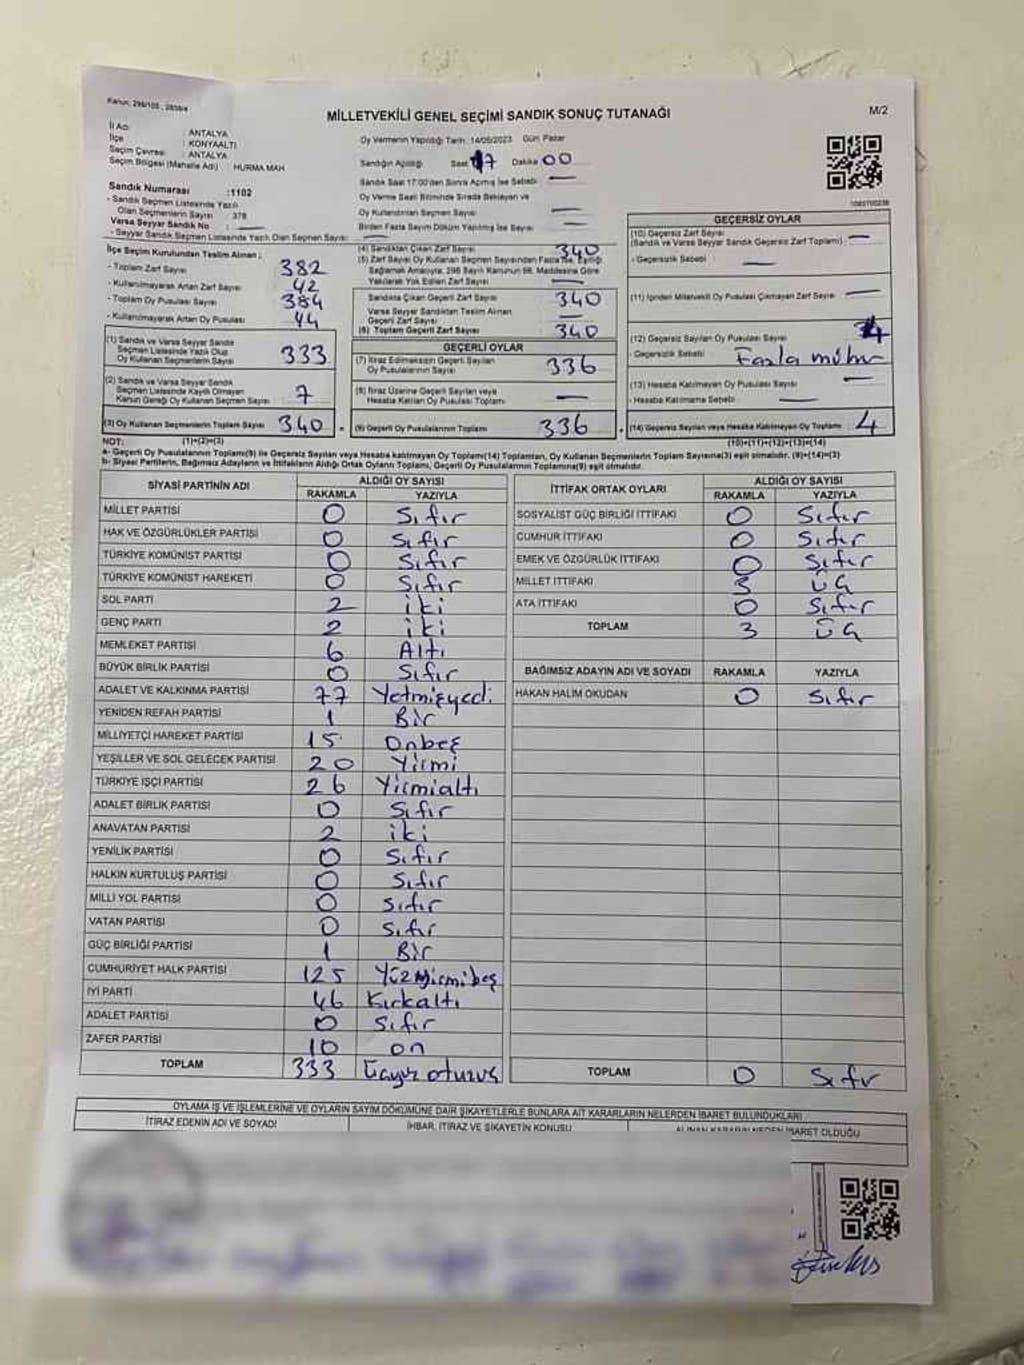 Kanun: 298/105 , 2839/4
MİLLETVEKİLİ GENEL SEÇİMİ SANDIK SONUÇ TUTANAĞI
M/2
İl Adı : ANTALYA
İlçe : KONYAALTI
Seçim Çevresi : ANTALYA
Seçim Bölgesi (Mahalle Adı) : HURMA MAH
Sandık Numarası :1102
- Sandık Seçmen Listesinde Yazılı
Olan Seçmenlerin Sayısı : 378
Varsa Seyyar Sandık No :
- Seyyar Sandık Seçmen Listesinde Yazılı Olan Seçmen Sayısı:
Oy Vermenin Yapıldığı Tarih: 14/05/2023 Gün: Pazar
Sandığın Açılışı Saat 17 Dakika 00
Sandık Saat 17:00'den Sonra Açılmış İse Sebebi :
Oy Verme Saati Bitiminde Sırada Bekleyen ve
Oy Kullandırılan Seçmen Sayısı :
Birden Fazla Sayım Döküm Yapılmış İse Sayısı :
1083700238
İlçe Seçim Kurulundan Teslim Alınan ;
- Toplam Zarf Sayısı 382
- Kullanılmayarak Artan Zarf Sayısı 42
- Toplam Oy Pusulası Sayısı 384
- Kullanılmayarak Artan Oy Pusulası 44
(1) Sandık ve Varsa Seyyar Sandık
Seçmen Listesinde Yazılı Olup
Oy Kullanan Seçmenlerin Sayısı : 333
(2) Sandık ve Varsa Seyyar Sandık
Seçmen Listesinde Kayıtlı Olmayan
Kanun Gereği Oy Kullanan Seçmen Sayısı : 7
(3) Oy Kullanan Seçmenlerin Toplam Sayısı : 340
(4) Sandıktan Çıkan Zarf Sayısı : 340
(5) Zarf Sayısı Oy Kullanan Seçmen Sayısından Fazla İse, Eşitliği
Sağlamak Amacıyla, 298 Sayılı Kanunun 98. Maddesine Göre
Yakılarak Yok Edilen Zarf Sayısı :
Sandıkta Çıkan Geçerli Zarf Sayısı : 340
Varsa Seyyar Sandıktan Teslim Alınan
Geçerli Zarf Sayısı :
(6) Toplam Geçerli Zarf Sayısı : 340
GEÇERLİ OYLAR
(7) İtiraz Edilmeksizin Geçerli Sayılan
Oy Pusulalarının Sayısı : 336
(8) İtiraz Üzerine Geçerli Sayılan veya
Hesaba Katılan Oy Pusulaları Toplamı :
(9) Geçerli Oy Pusulalarının Toplamı : 336
GEÇERSİZ OYLAR
(10) Geçersiz Zarf Sayısı
(Sandık ve Varsa Seyyar Sandık Geçersiz Zarf Toplamı) :
- Geçersizlik Sebebi :
(11) İçinden Milletvekili Oy Pusulası Çıkmayan Zarf Sayısı :
(12) Geçersiz Sayılan Oy Pusulası Sayısı : 4
- Geçersizlik Sebebi : Fazla mühür
(13) Hesaba Katılmayan Oy Pusulası Sayısı :
- Hesaba Katılmama Sebebi :
(14) Geçersiz Sayılan veya Hesaba Katılmayan Oy Toplamı : 4
NOT: (1)+(2)=(3) (10)+(11)+(12)+(13)=(14)
a- Geçerli Oy Pusulalarının Toplamı(9) ile Geçersiz Sayılan veya Hesaba katılmayan Oy Toplamı(14) Toplamları, Oy Kullanan Seçmenlerin Toplam Sayısına(3) eşit olmalıdır. (9)+(14)=(3)
b- Siyasi Partilerin, Bağımsız Adayların ve İttifakların Aldığı Ortak Oyların Toplamı, Geçerli Oy Pusulalarının Toplamına(9) eşit olmalıdır.
SİYASİ PARTİNİN ADI ALDIĞI OY SAYISI
RAKAMLA YAZIYLA
MİLLET PARTİSİ 0 Sıfır
HAK VE ÖZGÜRLÜKLER PARTİSİ 0 Sıfır
TÜRKİYE KOMÜNİST PARTİSİ 0 Sıfır
TÜRKİYE KOMÜNİST HAREKETİ 0 Sıfır
SOL PARTİ 2 iki
GENÇ PARTİ 2 iki
MEMLEKET PARTİSİ 6 Altı
BÜYÜK BİRLİK PARTİSİ 0 Sıfır
ADALET VE KALKINMA PARTİSİ 77 Yetmişyedi
YENİDEN REFAH PARTİSİ 1 Bir
MİLLİYETÇİ HAREKET PARTİSİ 15 Onbeş
YEŞİLLER VE SOL GELECEK PARTİSİ 20 Yirmi
TÜRKİYE İŞÇİ PARTİSİ 26 Yirmialtı
ADALET BİRLİK PARTİSİ 0 Sıfır
ANAVATAN PARTİSİ 2 iki
YENİLİK PARTİSİ 0 Sıfır
HALKIN KURTULUŞ PARTİSİ 0 Sıfır
MİLLİ YOL PARTİSİ 0 Sıfır
VATAN PARTİSİ 0 Sıfır
GÜÇ BİRLİĞİ PARTİSİ 1 Bir
CUMHURİYET HALK PARTİSİ 125 Yüzyirmibeş
İYİ PARTİ 46 Kırkaltı
ADALET PARTİSİ 0 Sıfır
ZAFER PARTİSİ 10 on
TOPLAM 333 Üçyüz otuzüç
İTTİFAK ORTAK OYLARI ALDIĞI OY SAYISI
RAKAMLA YAZIYLA
SOSYALİST GÜÇ BİRLİĞİ İTTİFAKI 0 Sıfır
CUMHUR İTTİFAKI 0 Sıfır
EMEK VE ÖZGÜRLÜK İTTİFAKI 0 Sıfır
MİLLET İTTİFAKI 3 Üç
ATA İTTİFAKI 0 Sıfır
TOPLAM 3 Üç
BAĞIMSIZ ADAYIN ADI VE SOYADI RAKAMLA YAZIYLA
HAKAN HALİM OKUDAN 0 Sıfır
TOPLAM 0 Sıfır
OYLAMA İŞ VE İŞLEMLERİNE VE OYLARIN SAYIM DÖKÜMÜNE DAİR ŞİKAYETLERLE BUNLARA AİT KARARLARIN NELERDEN İBARET BULUNDUKLARI
İTİRAZ EDENİN ADI VE SOYADI
İHBAR, İTİRAZ VE ŞİKAYETİN KONUSU
ALINAN KARARIN NEDEN İBARET OLDUĞU